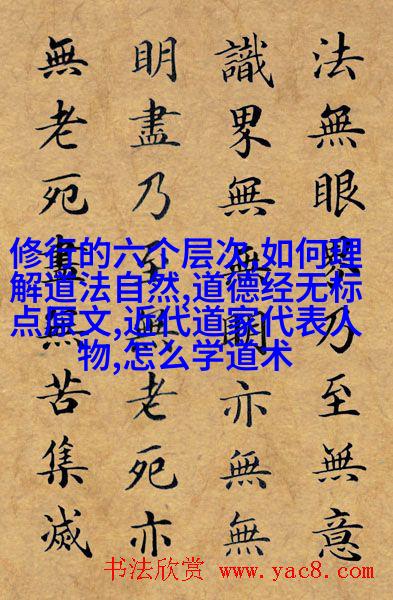 法無眼界乃至無意
識界無無明亦無無
明盡乃至無老死亦
無老死盡無苦集滅
修行的六个层次,如何理
解道法自然,道德经无标
点原文,近代道家代表人
物,怎么学道术
书法欣赏 www.yac8.com